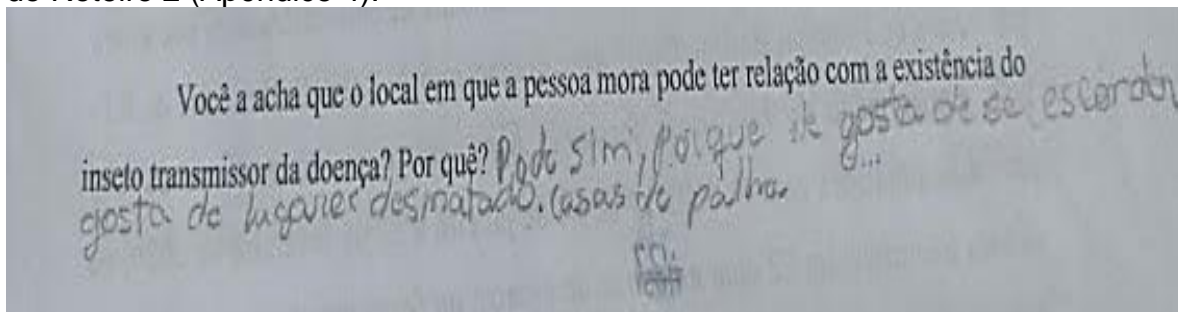 do Roteiro 2 (Apêndice 4).
Você a acha que o local em que a pessoa mora pode ter relação com a existência do
inseto transmissor da doença? Por quê? Pode sim, porque ele gosta de se esconder
e...
gosta de lugares desmatado. Casas de palha.